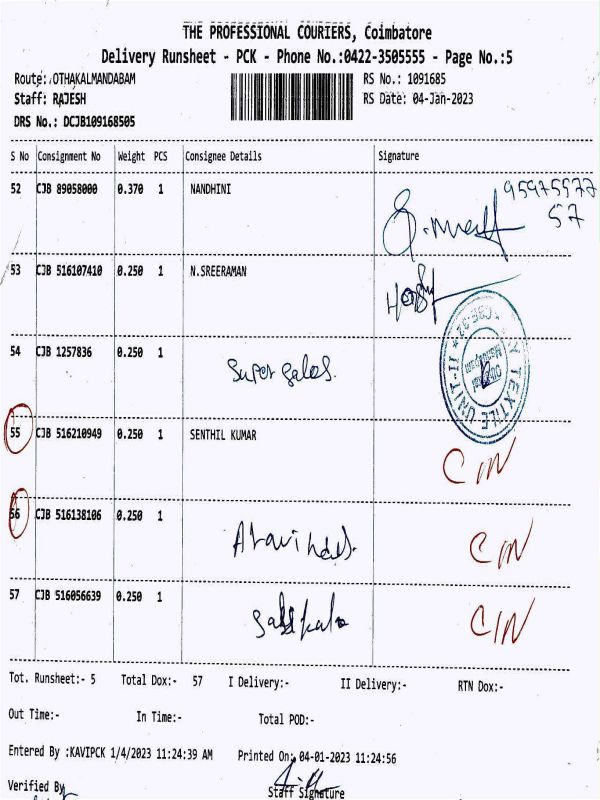 THE PROFESSIONAL COURIERS, Coimbatore
Delivery Runsheet - PCK - Phone No.:0422-3505555 - Page No.:5
Route: OTHAKALMANDABAM RS No.: 1091685
Staff: RAJESH RS Date: 04-Jan-2023
DRS No.: DCJB109168505
S No Consignment No Weight PCS Consignee Details Signature
52 CJB 89058000 0.370 1 NANDHINI
57
53 CJB 516107410 0.250 1 N.SREERAMAN
54 CJB 1257836 0.250 1 Super Sales.
TEXTILE UNIT-II
55 CJB 516210949 0.250 1 SENTHIL KUMAR CIN
56 CJB 516138106 0.250 1 CIN
57 CJB 516056639 0.250 1 CIN
Tot. Runsheet:- 5 Total Dox:- 57 I Delivery:- II Delivery:- RTN Dox:-
Out Time:- In Time:- Total POD:-
Entered By :KAVIPCK 1/4/2023 11:24:39 AM Printed On: 04-01-2023 11:24:56
Verified By Staff Signature